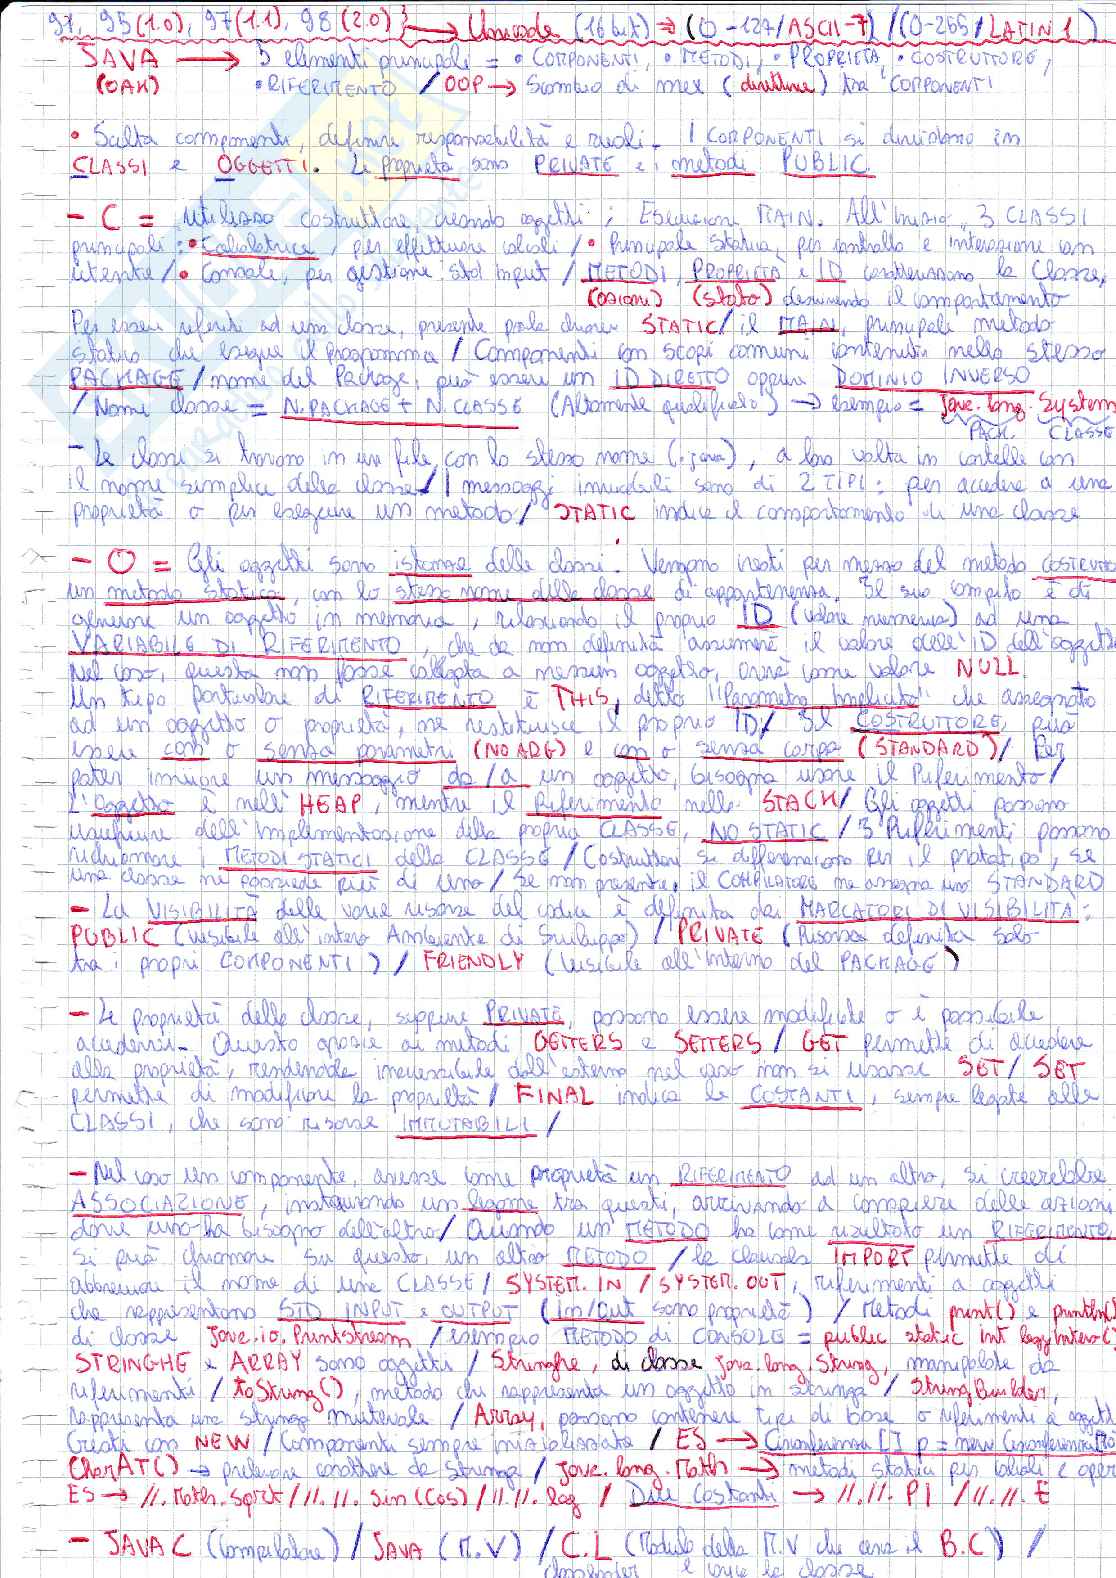 91, 95(1.0), 97(1.1), 98(2.0) → Unicode (16 bit) ⇒ (0-127/ASCII-7) / (0-255/LATIN 1)
JAVA → 5 elementi principali = • COMPONENTI, • METODI, • PROPRIETÀ, • COSTRUTTORE,
(OAK) • RIFERIMENTO / OOP → Scambio di mex (direttive) tra COMPONENTI
• Scelta componenti, definire responsabilità e ruoli. I COMPONENTI si dividono in
CLASSI e OGGETTI. Le proprietà sono PRIVATE e i metodi PUBLIC.
- C = utilizzo costruttore, creando oggetti; Esecuzione MAIN. All'inizio, 3 CLASSI
principali: • Calcolatrice per effettuare calcoli / • Principale statica, per controllo e interazione con
utente / • Console, per gestione std input / METODI, PROPRIETÀ e ID costituiscono la Classe,
(azioni) (stato) descrivendo il comportamento
Per essere riferiti ad una classe, presente parola chiave STATIC / il MAIN, principale metodo
statico che esegue il programma / Componenti con scopi comuni contenuti nello stesso
PACKAGE / nome del Package, può essere un ID DIRETTO oppure DOMINIO INVERSO
/ Nome classe = N.PACKAGE + N.CLASSE (Altamente qualificato) → esempio = java.lang.System
PACK. CLASSE
- Le classi si trovano in un file con lo stesso nome (.java), a loro volta in cartelle con
il nome semplice della classe / I messaggi inviabili sono di 2 TIPI: per accedere a una
proprietà o per eseguire un metodo / STATIC indica il comportamento di una classe
- O = Gli oggetti sono istanze delle classi. Vengono creati per mezzo del metodo COSTRUTTO
un metodo statico, con lo stesso nome della classe di appartenenza. Il suo compito è di
generare un oggetto in memoria, rilasciando il proprio ID (valore numerico) ad una
VARIABILE DI RIFERIMENTO, che da non definita assumerà il valore dell'ID dell'oggetto
Nel caso, questa non fosse collegata a nessun oggetto, avrà come valore NULL.
Un tipo particolare di RIFERIMENTO è THIS, detto "Parametro Implicito" che assegnato
ad un oggetto o proprietà, ne restituisce il proprio ID / Il COSTRUTTORE, può
essere con o senza parametri (NO ARG) e con o senza corpo (STANDARD) / Per
poter inviare un messaggio da/a un oggetto, bisogna usare il Riferimento /
L'oggetto è nell'HEAP, mentre il Riferimento nello STACK / Gli oggetti possono
usufruire dell'implementazione della propria CLASSE, NO STATIC / I Riferimenti possono
richiamare i METODI STATICI della CLASSE / Costruttori si differenziano per il prototipo, se
una classe ne possiede più di uno / Se non presente, il COMPILATORE ne assegna uno STANDARD
- La VISIBILITÀ delle varie risorse del codice è definita dai MARCATORI DI VISIBILITÀ:
PUBLIC (visibile all'intero Ambiente di Sviluppo) / PRIVATE (Risorsa definita solo
tra i propri COMPONENTI) / FRIENDLY (visibile all'interno del PACKAGE)
- Le proprietà delle classe, seppure PRIVATE, possono essere modificate o è possibile
accedervi. Questo grazie ai metodi GETTERS e SETTERS / GET permette di accedere
alla proprietà, rendendola inaccessibile dall'esterno nel caso non si usasse SET / SET
permette di modificare la proprietà / FINAL indica le COSTANTI, sempre legate alle
CLASSI, che sono risorse IMMUTABILI /
- Nel caso un componente, avesse come proprietà un RIFERIMENTO ad un altro, si creerebbe
ASSOCIAZIONE, instaurando un legame tra questi, arrivando a compiere delle azioni
dove uno ha bisogno dell'altro / Quando un METODO ha come risultato un RIFERIMENTO,
si può chiamare su questo, un altro METODO / la clausola IMPORT permette di
abbreviare il nome di una CLASSE / SYSTEM.IN / SYSTEM.OUT, riferimenti a oggetti
che rappresentano STD INPUT e OUTPUT (in/out sono proprietà) / Metodi print() e println()
di classe java.io.PrintStream / esempio METODO di CONSOLE = public static int leggiIntero()
STRINGHE e ARRAY sono oggetti / Stringhe, di classe java.lang.String, manipolate da
riferimenti / toString(), metodo che rappresenta un oggetto in stringa / StringBuilder,
rappresenta una stringa mutevole / Array, possono contenere tipi di base o riferimenti a oggetti
Creati con NEW / Componenti sempre inizializzate / ES → Circonferenza [] p = new Circonferenza[10]
CharAT() → prelevare carattere da stringa / java.lang.Math → metodi statici per calcoli e oper
ES → //.Math.sqrt / //.//.sin(cos) / //.//.log / Dati Costanti → //.//.PI / //.//.E
- JAVAC (compilatore) / JAVA (M.V) / C.L (Modulo della M.V che cerca il B.C) /